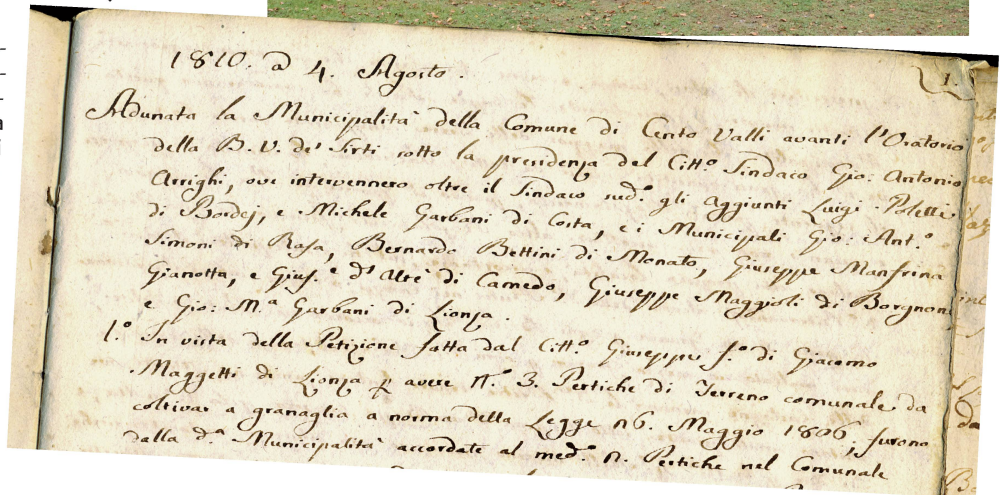 1810. a 4. Agosto.
1.
Adunata la Municipalità della Comune di Cento Valli avanti l'Oratorio
della B. V. de' Sirti sotto la presidenza del Citt.º Sindaco Gio: Antonio
Arrighi, ove intervennero oltre il Sindaco sud.º gli Aggiunti Luigi Poletti
di Bordej, e Michele Garbani di Costa, e i Municipali Gio: Ant.º
Simoni di Rasa, Bernardo Bettini di Monato, Giuseppe Manfrina
Gianotta, e Gius.e d' Alrè di Camedo, Giuseppe Maggioli di Borgnone
e Gio: M.a Garbani di Lionza.
1.º In vista della Petizione fatta dal Citt.º Giuseppe f.º di Giacomo
Maggetti di Lionza avere N.º 3. Pertiche di Terreno comunale da
coltivar a granaglia a norma della Legge 26. Maggio 1806, furono
dalla d.a Municipalità accordate al med.º n. Pertiche nel Comunale